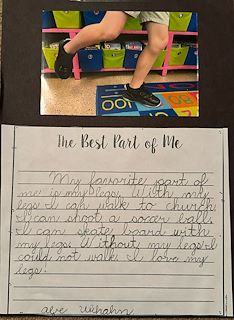 The Best Part of Me
My favorite part of
me is my legs. With my
legs I can walk to church
I can shoot a soccer ball
I can skate board with
my legs. Without my legs I
could not walk. I love my
legs!